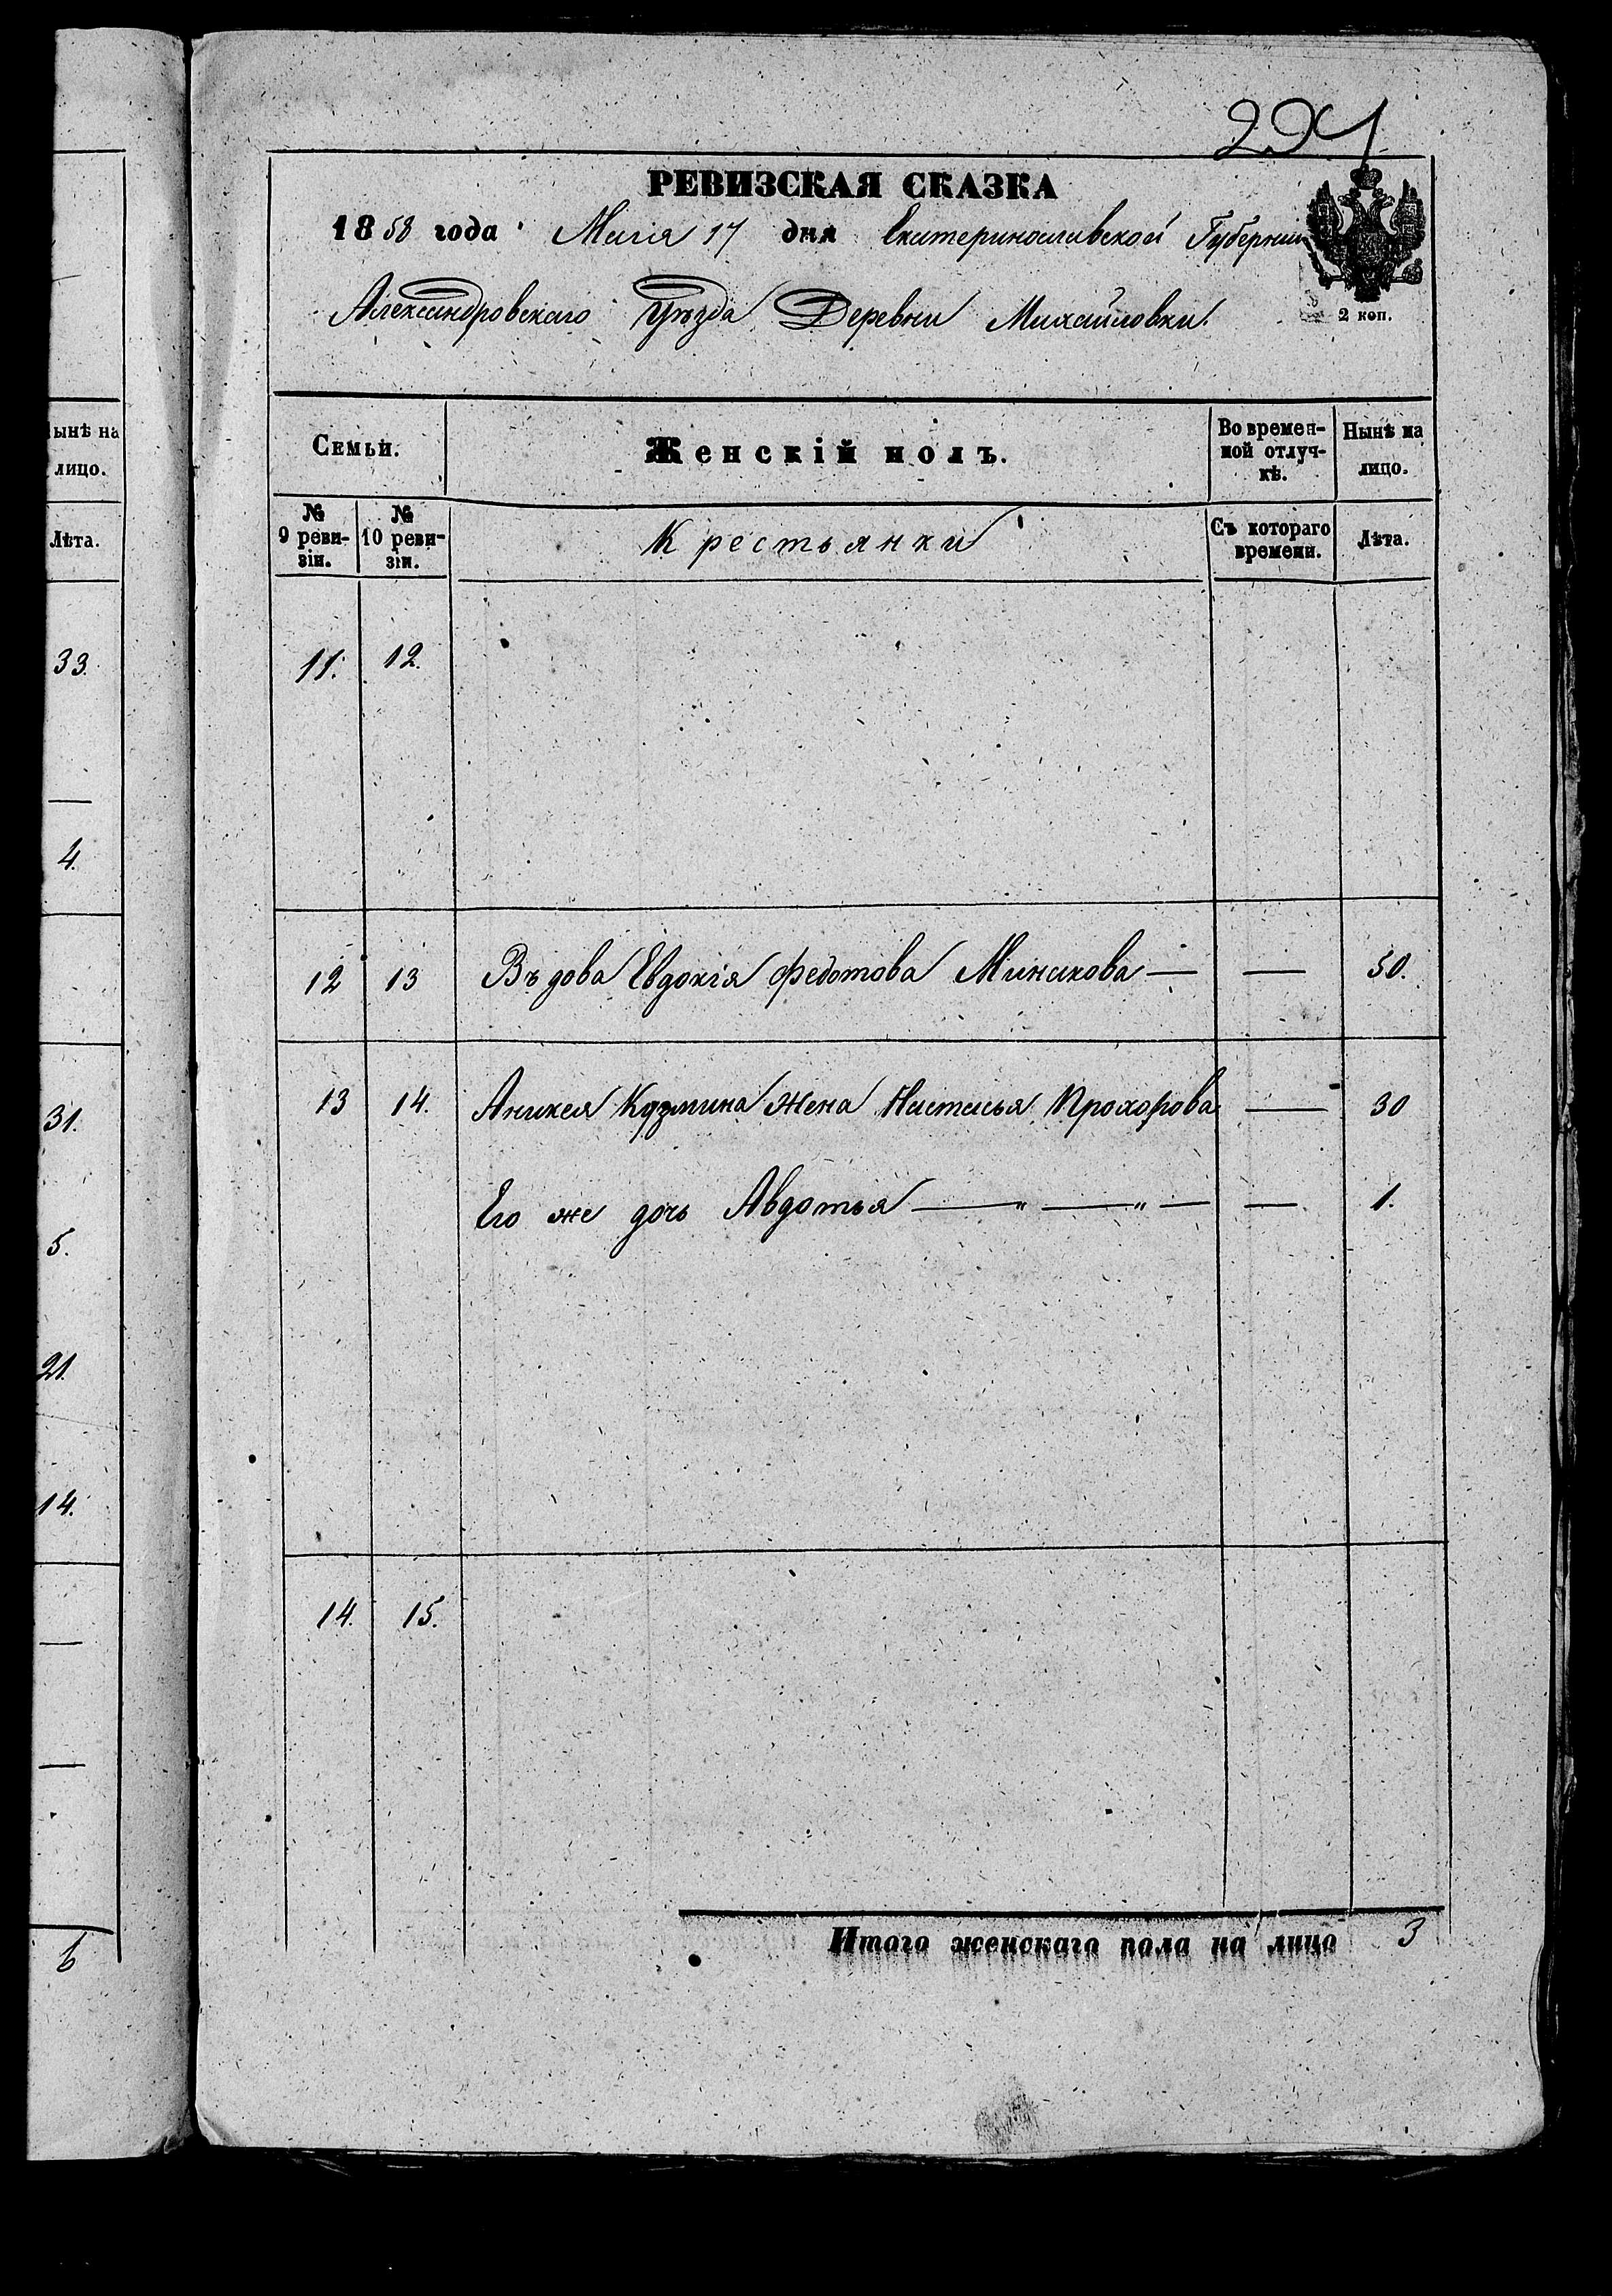 294
РЕВИЗСКАЯ СКАЗКА
1858 года Маія 17 дня Екатеринославской Губерніи
Александровскаго Уѣзда Деревни Михайловки.
2 коп.
Семьи.
Женскій полъ.
Во времен-
ной отлуч-
кѣ.
Нынѣ на
лицо.
№
9 реви-
зіи.
№
10 реви-
зіи.
Крестьянки
Съ котораго
времени.
Лѣта.
11. 12.
12 13 Въдова Евдокія Федотова Минакова — — 50.
13 14. Аникея Кузмина жена Настасья Прохорова — 30
Его же дочь Авдотья — " — " — — 1.
14. 15.
Итого женскаго пола на лицо 3
ынѣ на
лицо.
Лѣта.
33.
—
4.
31.
5.
21.
14.
—
—
6